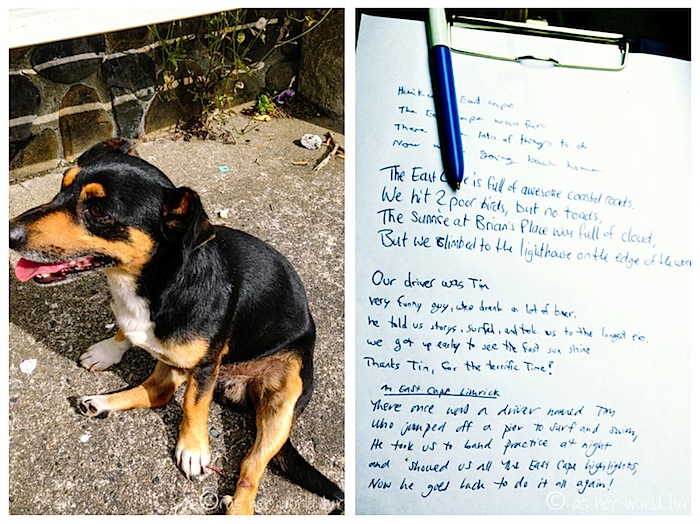 Haiku East Cape
The East Cape was fun
There lots of things to do
Now going back home
The East Cape is full of awesome coastal roads,
We hit 2 poor birds, but no toads,
The Sunrise at Brian's Place was full of cloud,
But we climbed to the lighthouse on the edge of the
Our driver was Tim
very funny guy, who drank a lot of beer,
he told us storys, surfed, and took us to the longest pier,
we got up early to see the first sun shine
Thanks Tim, for the terrific Time!
East Cape Limrick
There once was a driver named Tim
Who jumped off a pier to surf and swim,
He took us to band practice at night
and showed us all the East Cape highlights,
Now he goes back to do it all again!
© as her world tur
© as her world tur